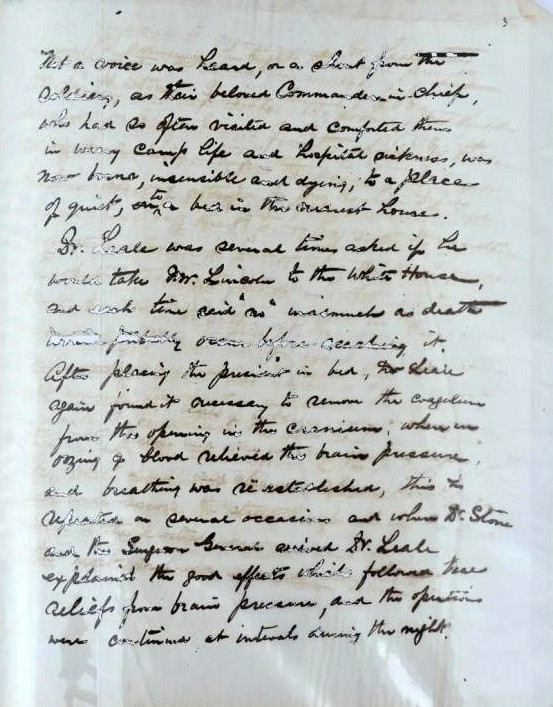 3
Not a voice was heard, or a shout from the
soldiers, as their beloved Commander in chief,
who had so often visited and comforted them
in weary camp life and hospital sickness, was
now borne, insensible and dying, to a place
of quiet, on to a bed in the nearest house.
Dr. Leale was several times asked if he
would take Mr. Lincoln to the White House,
and each time said "no" inasmuch as death
would probably occur before reaching it.
After placing the President in bed, Dr Leale
again found it necessary to remove the coagulum
from the opening in the cranium, when an
oozing of blood relieved the brain pressure,
and breathing was re established, this he
repeated on several occasions and when Dr. Stone
and the Surgeon General arrived Dr. Leale
explained the good effects which followed these
reliefs from brain pressure, and the operations
were continued at intervals during the night.